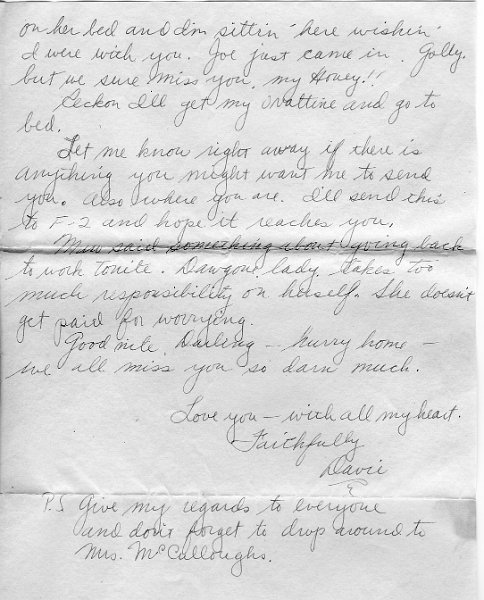 on her bed and I'm sittin' here wishin'
I were with you. Joe just came in. Golly.
but we sure miss you, my Honey!!
Reckon I'll get my Ovaltine and go to
bed.
Let me know right away if there is
anything you might want me to send
you. Also where you are. I'll send this
to F-2 and hope it reaches you.
said something about going back
to work tonite. Dawgone lady, takes too
much responsibility on herself. She doesn't
get paid for worrying.
Good nite, Darling - hurry home -
we all miss you so darn much.
Love you - with all my heart.
Faithfully
Davie
P.S Give my regards to everyone
and don't forget to drop around to
Mrs. McCulloughs.